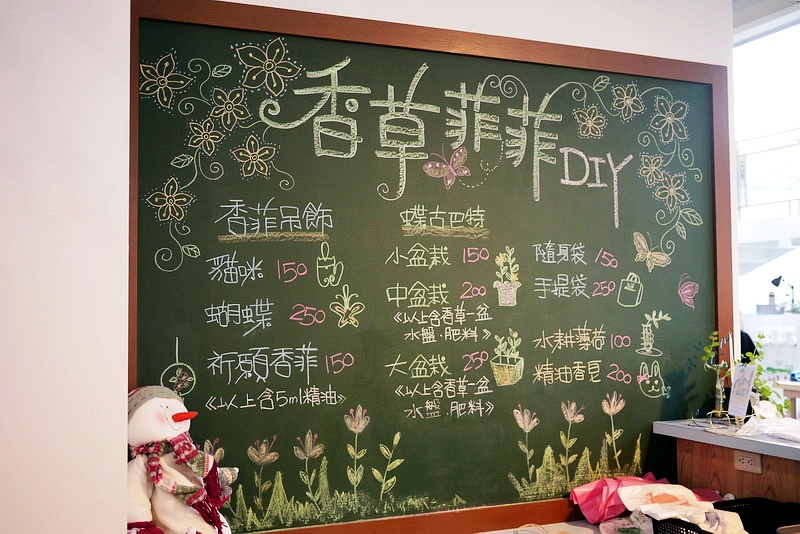 香草菲菲DIY
香菲吊飾
貓咪 150
蝴蝶 250
祈願香菲 150
《以上含5ml精油》
蝶古巴特
小盆栽 150
中盆栽 200
《以上含香草一盆
水盤.肥料》
大盆栽 250
《以上含香草一盆
水盤.肥料》
隨身袋 150
手提袋 250
水耕薄荷 100
精油香皂 200